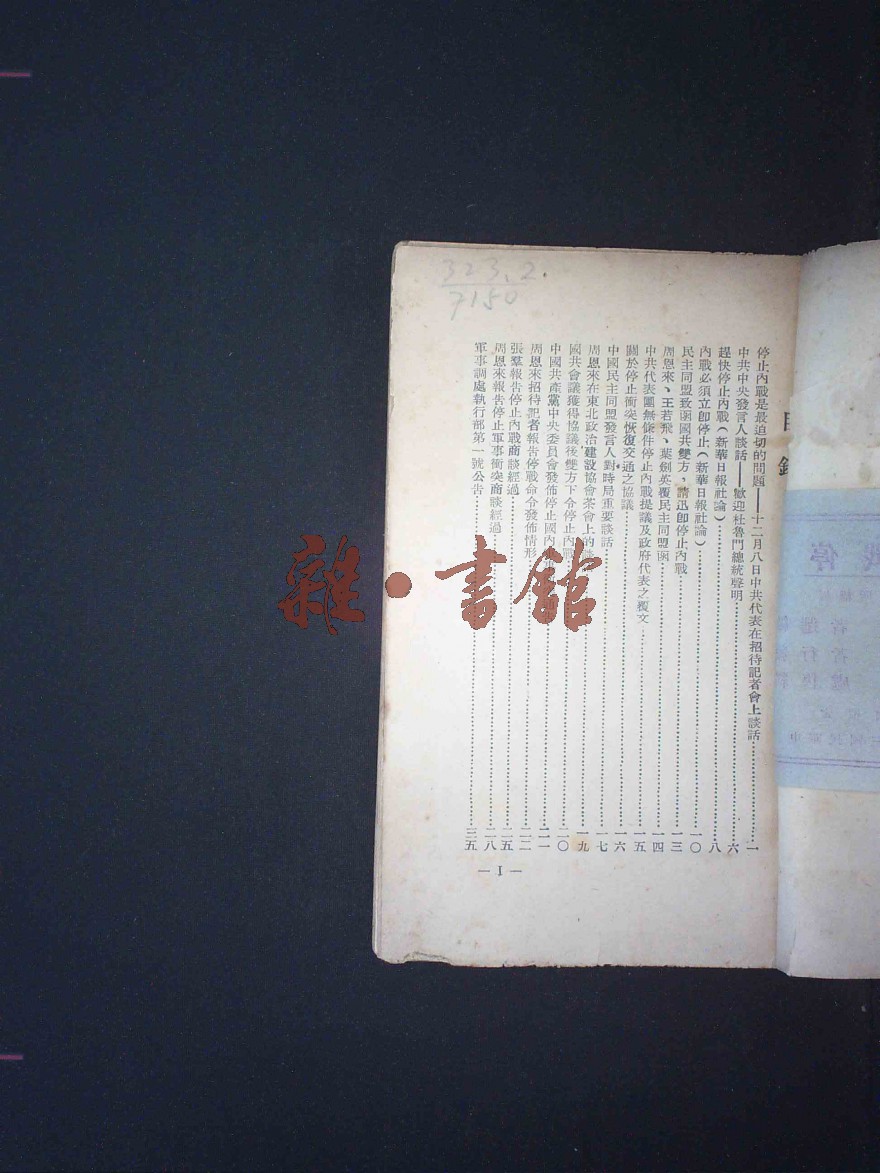 323.2.
7150
目錄
停止內戰是最迫切的問題——十二月八日中共代表在招待記者會上談話 一
中共中央發言人談話——歡迎杜魯門總統聲明 六
趕快停止內戰(新華日報社論) 八
內戰必須立卽停止(新華日報社論) 一〇
民主同盟致函國共雙方、請迅卽停止內戰 一三
周恩來、王若飛、葉劍英覆民主同盟函 一四
中共代表團無條件停止內戰提議及政府代表之覆文 一五
關於停止衝突恢復交通之協議 一六
中國民主同盟發言人對時局重要談話 一七
周恩來在東北政治建設協會茶會上的談 一九
國共會議獲得協議後雙方下令停止內戰 二〇
中國共產黨中央委員會發佈停止國內 二一
周恩來招待記者報告停戰命令發佈情形 二二
張羣報告停止內戰商談經過 二五
周恩來報告停止軍事衝突商談經過 二八
軍事調處執行部第一號公告 三五
— I —
雜·書館